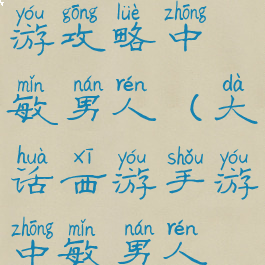 yóu gōng lüè zhōng
游攻略中
mǐn nán rén dà
敏男人（大
huà xī yóu shǒu yóu
话西游手游
zhōng mǐn nán rén
中敏男人